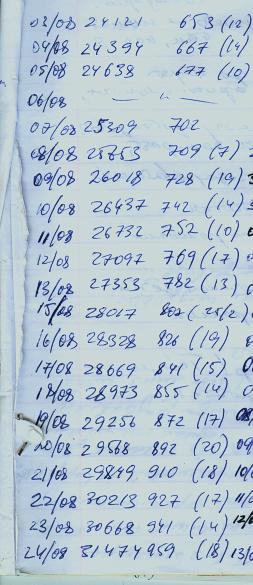 03/08 24121 653 (12)
04/08 24394 667 (14)
05/08 24638 677 (10)
06/08 — " —
07/08 25309 702
08/08 25653 709 (7)
09/08 26018 728 (19)
10/08 26437 742 (14)
11/08 26732 752 (10)
12/08 27097 769 (17)
13/08 27353 782 (13)
15/08 28017 807 (25/2)
16/08 28328 826 (19)
17/08 28669 841 (15)
18/08 28973 855 (14)
19/08 29256 872 (17)
20/08 29568 892 (20)
21/08 29849 910 (18)
22/08 30213 927 (17)
23/08 30668 941 (14)
24/08 31474 959 (18)